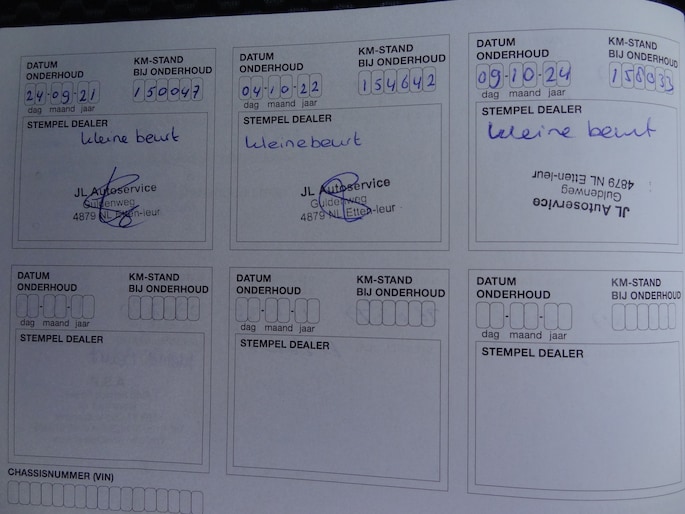 DATUM ONDERHOUD
KM-STAND BIJ ONDERHOUD
24-09-21
150047
dag maand jaar
STEMPEL DEALER
kleine beurt
JL Autoservice
Guldenweg
4879 NL Etten-leur
DATUM ONDERHOUD
KM-STAND BIJ ONDERHOUD
04-10-22
154642
dag maand jaar
STEMPEL DEALER
kleine beurt
JL Autoservice
Guldenweg
4879 NL Etten-leur
DATUM ONDERHOUD
KM-STAND BIJ ONDERHOUD
09-10-24
158033
dag maand jaar
STEMPEL DEALER
kleine beurt
JL Autoservice
Guldenweg
4879 NL Etten-leur
DATUM ONDERHOUD
KM-STAND BIJ ONDERHOUD
dag maand jaar
STEMPEL DEALER
DATUM ONDERHOUD
KM-STAND BIJ ONDERHOUD
dag maand jaar
STEMPEL DEALER
DATUM ONDERHOUD
KM-STAND BIJ ONDERHOUD
dag maand jaar
STEMPEL DEALER
CHASSISNUMMER (VIN)